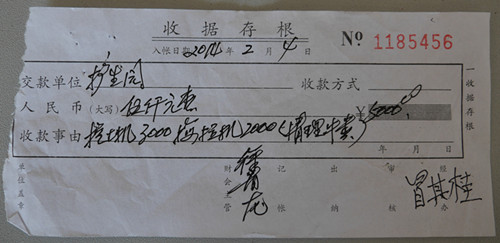 收据存根
入帐日期2014年2月4日
№ 1185456
交款单位 护生园 收款方式
人民币(大写) 伍仟元 ¥5000.00
收款事由 挖土机3000 拖拉机2000
年 月 日
一收据存根
单位盖章
财会主管
记帐
出纳
审核
经办
冒其桂